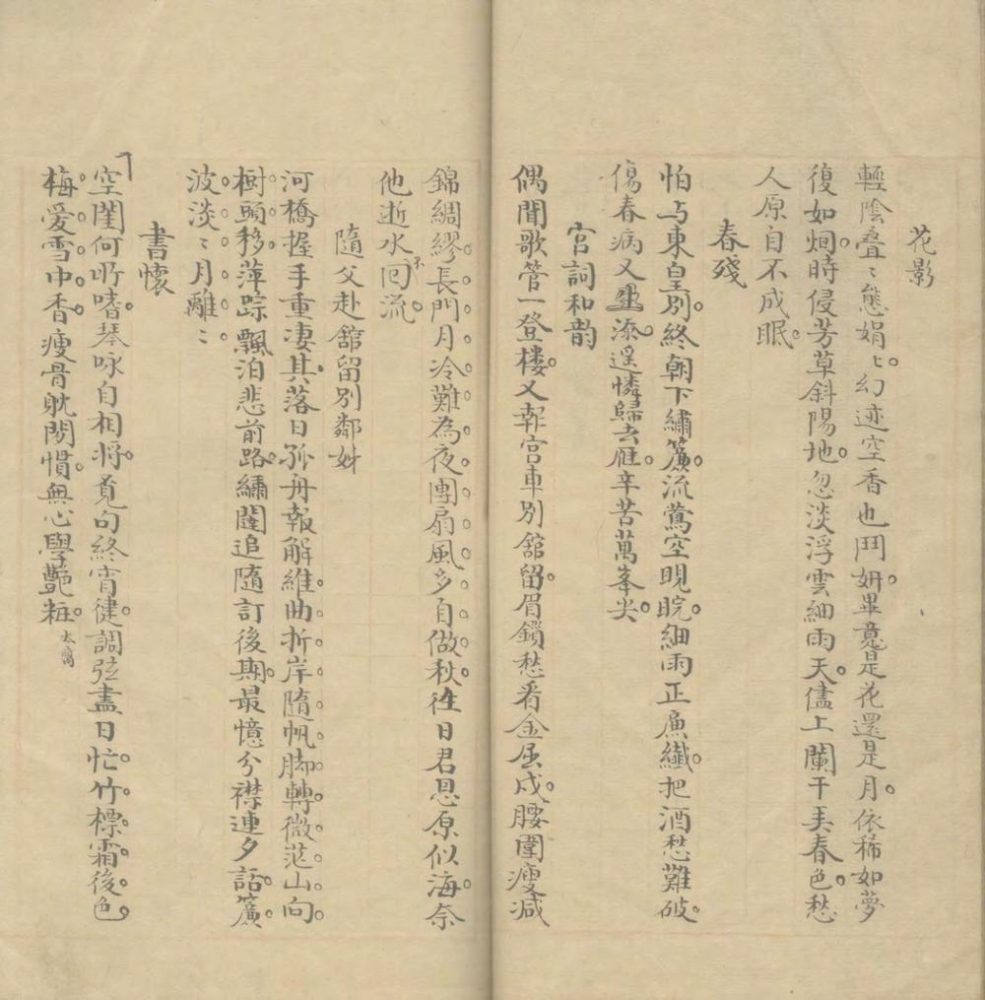 花影
輕陰叠〻態娟〻幻迹空香也鬥妍畢竟是花還是月依稀如夢
復如烟時侵芳草斜陽地忽淡浮雲細雨天儘上闌干弄春色愁
人原自不成眠
春殘
怕与東皇別終朝下繡簾流鶯空睍睆細雨正廉纖把酒愁難破
傷春病又添遥憐歸去雁辛苦萬峯尖
宮詞和韵
偶聞歌管一登樓又報宮車別舘留眉鎖愁看金屈戍腰圍瘦減
錦綢繆長門月冷難為夜團扇風多自做秋往日君恩原似海奈
他逝水不回流
隨父赴舘留別鄰姊
河橋握手重凄其落日孤舟報解維曲折岸隨帆脚轉微茫山向
樹頭移萍踪飄泊悲前路繡闥追隨訂後期最憶分襟連夕話簾
波淡〻月離〻
書懷
空閨何所嗜琴咏自相將覓句終宵健調弦盡日忙竹標霜後色
梅愛雪中香瘦骨躭閒慣無心學艷粧